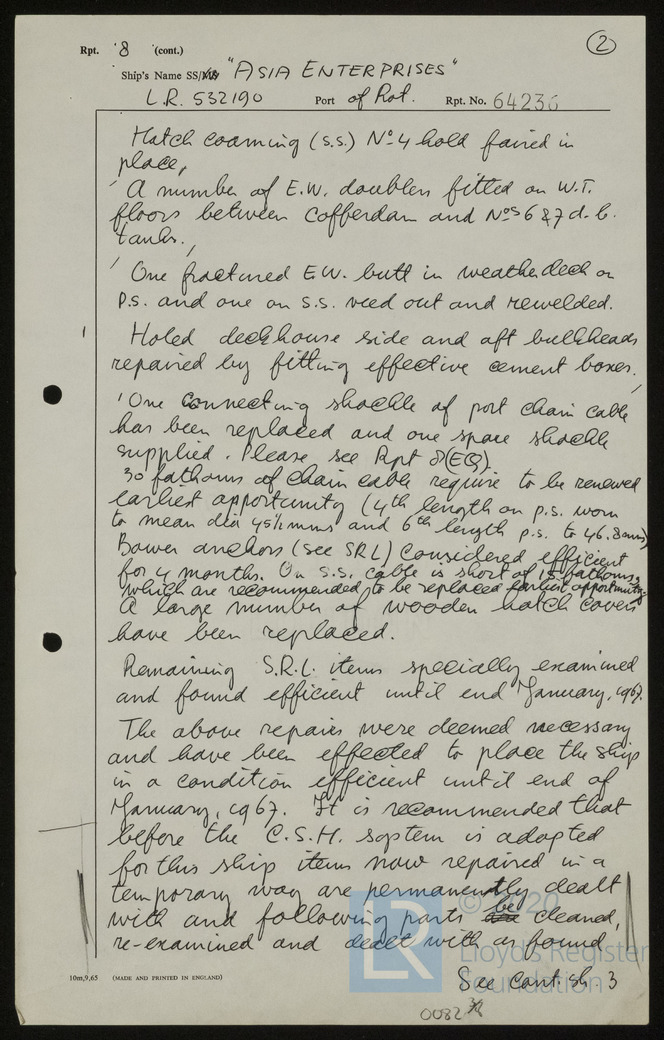 Rpt. 8 (cont.)
2
Ship's Name SS/MV "ASIA ENTERPRISES"
L.R. 532190 Port of Rot. Rpt. No. 64236
Hatch coaming (s.s.) No 4 hold faired in
place,
A number of E.W. doublers fitted on W.T.
floors between Cofferdam and Nos 6 & 7 d.b.
tanks.
One fractured E.W. butt in weatherdeck on
P.S. and one on S.S. veed out and rewelded.
Holed deckhouse side and aft bulkheads
repaired by fitting effective cement boxes.
One connecting shackle of port chain cable
has been replaced and one spare shackle
supplied. Please see Rpt 8(EQ).
30 fathoms of chain cable require to be renewed
earliest opportunity (4th length on p.s. worn
to mean dia 45½mms and 6th length p.s. to 46.8mms)
Bower anchors (see SRL) considered efficient
for 4 months. On S.S. cable is short of 15 fathoms,
which are recommended to be replaced earliest opportunity.
A large number of wooden hatch covers
have been replaced.
Remaining S.R.L. items specially examined
and found efficient until end January, 1967.
The above repairs were deemed necessary
and have been effected to place the ship
in a condition efficient until end of
January, 1967. It is recommended that
before the C.S.H. system is adopted
for this ship items now repaired in a
temporary way are permanently dealt
with and following parts be cleaned,
re-examined and dealt with as found
See cont. sh. 3
10m,9,65 (MADE AND PRINTED IN ENGLAND)
© 2020
LR
Lloyd's Register
Foundation
0082